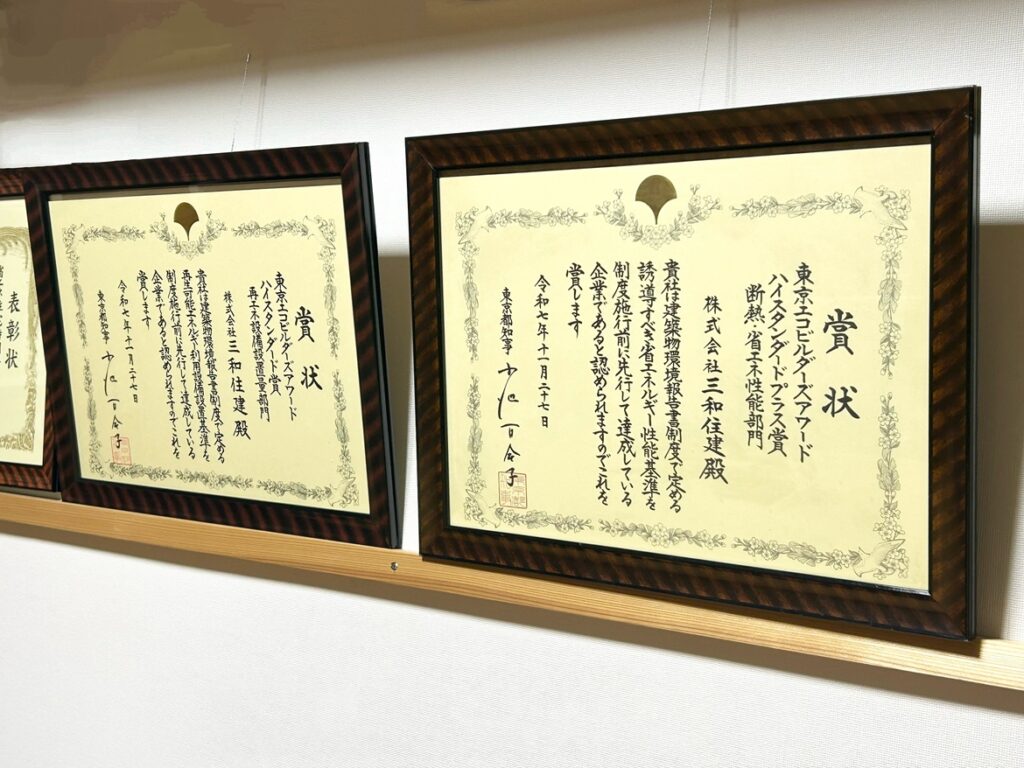 賞状
東京エコビルダーズアワード
ハイスタンダードプラス賞
断熱・省エネ性能部門
株式会社三和住建殿
貴社は建築物環境報告書制度で定める
誘導すべき省エネルギー性能基準を
制度施行前に先行して達成している
企業であると認められますのでこれを
賞します
令和七年十一月二十七日
東京都知事 小池百合子
賞状
東京エコビルダーズアワード
ハイスタンダード賞
再エネ設備設置量部門
株式会社三和住建殿
貴社は建築物環境報告書制度で定める
再生可能エネルギー利用設備設置基準を
制度施行前に先行して達成している
企業であると認められますのでこれを
賞します
令和七年十一月二十七日
東京都知事 小池百合子
表彰状